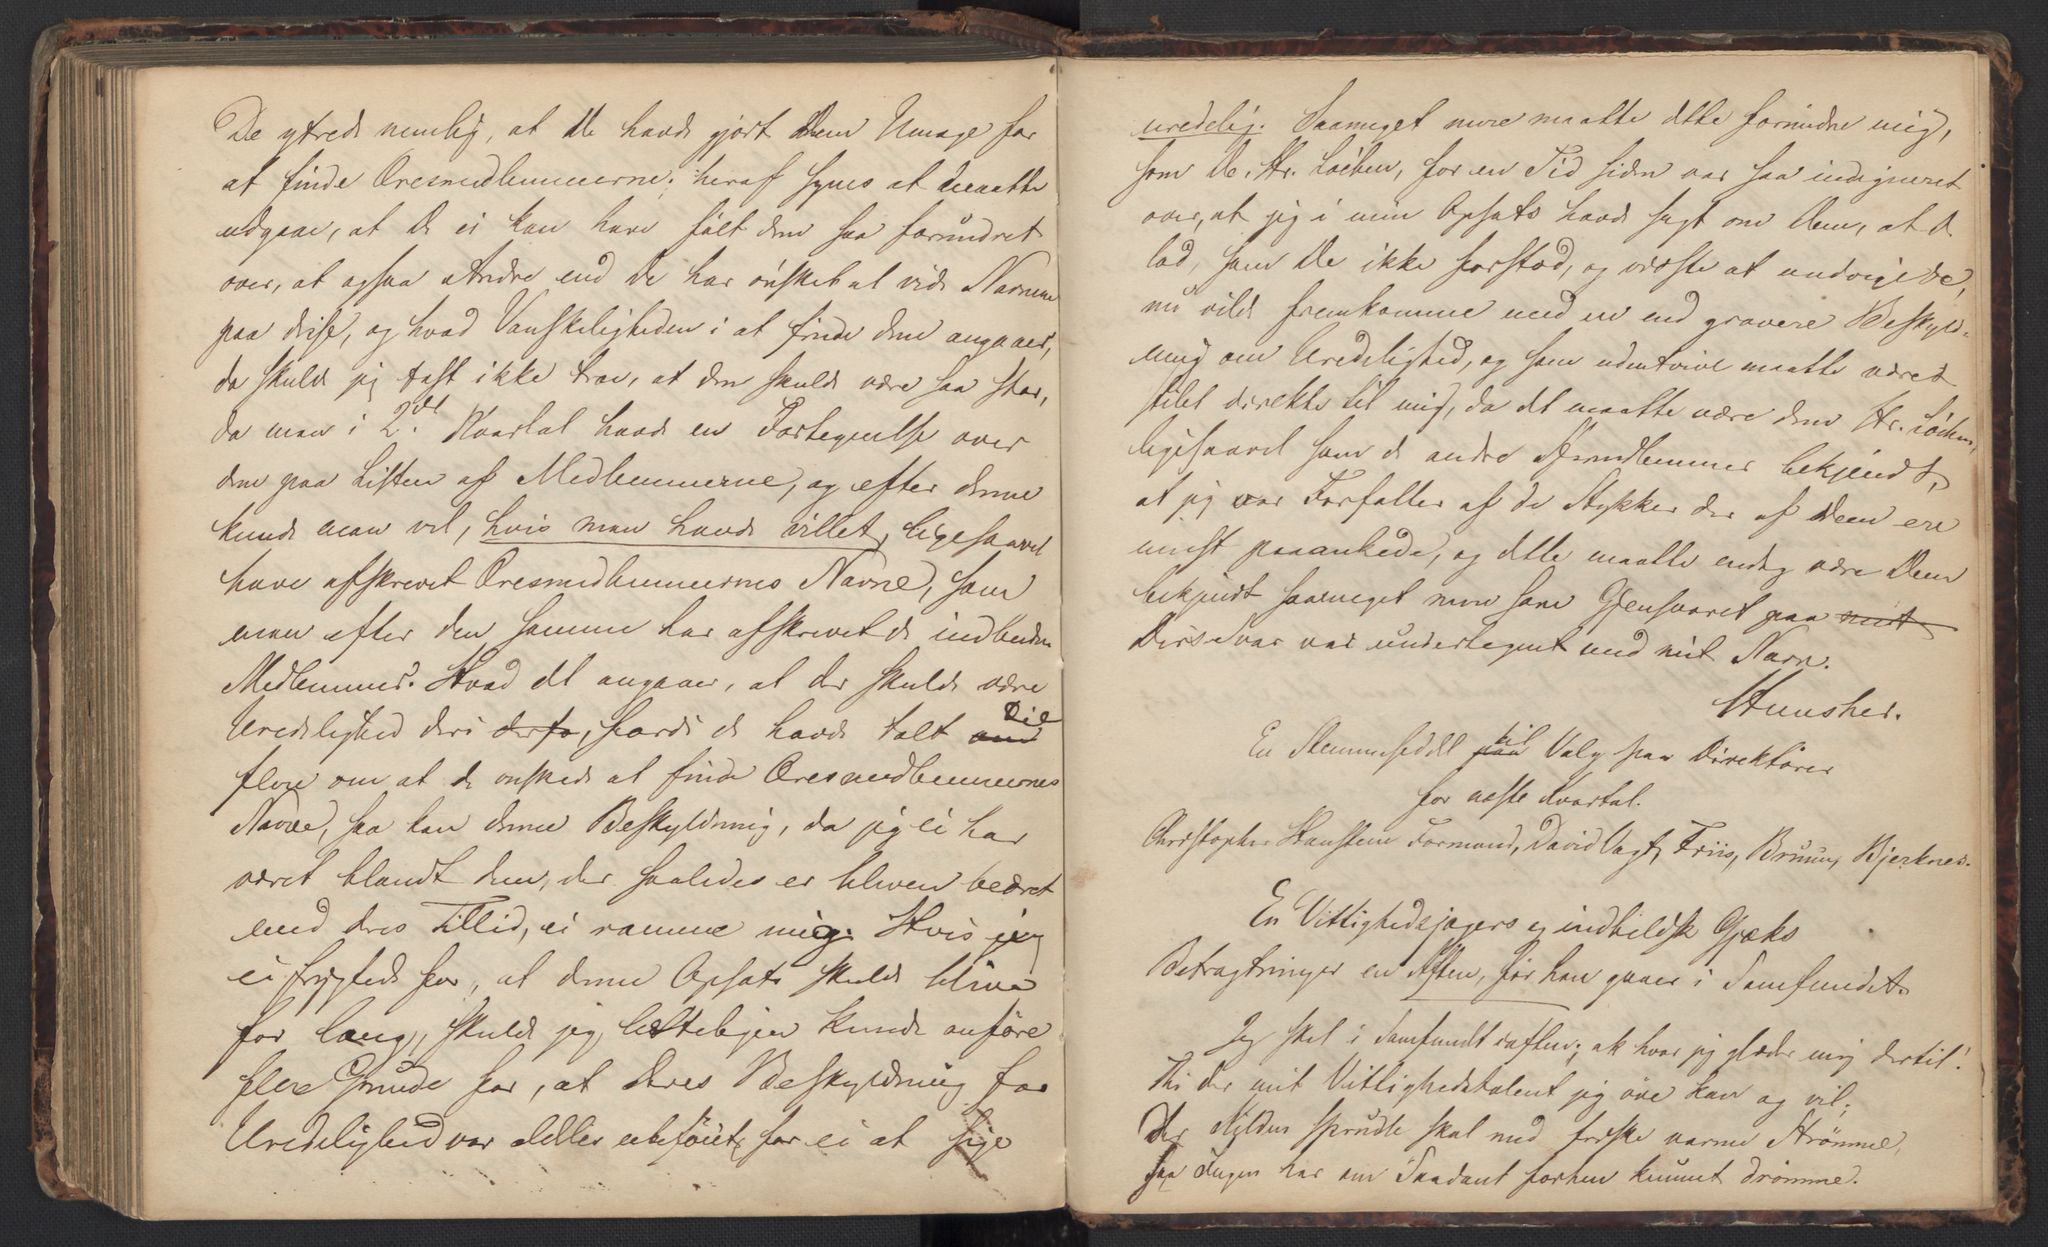 De yttrede nemlig, at De havde gjort Dem Umage for
at finde Æresmedlemmerne; heraf synes at maatte
udgaae, at De ei kan have følt dem saa forundret
over, at ogsaa Andre end De har ønsket at vide Navnene
paa disse, og hvad Vanskeligheden i at finde dem angaaer,
da skulde jeg fast ikke troe, at den skulde være saa stor,
da man i 2det Kvartal havde en Fortegnelse over
dem paa Listen af Medlemmerne, og efter denne
kunde man vel, hvis man havde villet, ligesaavel
have afskrevet Æresmedlemmernes Navne, som
man efter den samme har afskrevet de indbudne
Medlemmer. Hvad det angaaer, at der skulde være
Uredelighed deri derfo, fordi de havde talt med til
flere om at de ønskede at finde Æresmedlemmernes
Navne, saa kan denne Beskyldning, da jeg ei har
været blandt dem, der saaledes er bleven beæret
med deres Tillid, ei ramme mig. Hvis jeg
ei frygtede for, at denne Opsats skulde blive
for lang, skulde jeg letteligen kunde anføre
flere Grunde for, at Deres Beskyldning for
Uredelighed var aldeles ubeføiet, for ei at sige
uredelig. Saameget mere maatte dette forundre mig,
som De, Hr. Løcken, for en Tid siden var saa indigneret
over, at jeg i min Opsats havde sagt om Dem, at de
lod, som De ikke forstod, og vidste at undvige det,
nu vilde fremkomme med en end grovere Beskyld-
ning om Uredelighed, og som udentvivl maatte været
stilet direkte til mig, da det maatte være dem Hr. Løcken,
ligesaavel som de andre Medlemmer bekjendt,
at jeg var Forfatter af de Stykker der af Dem ere
mest paaankede, og dette maatte endog være Dem
bekjendt saameget mere som Gjensvaret paa mit
Deres Svar var undertegnet med mit Navn.
Hunsher.
En Stemmeseddel paa til Valg paa Direktører
for næste Kvartal.
Christopher Hansteen Formand, David Vogt, Friis, Bruun, Bjerknes.
En Vittighedsjægers og indbildsk Gjæks
Betragtninger en Aften, før han gaaer i Samfundet.
Jeg skal i Samfundet iaften; ak hvor jeg glæder mig dertil!
Thi der mit Vittighedstalent jeg øve kan og vil;
Der Kilden sprudle skal med friske varme Strømme,
Saa Ingen har om Saadant forhen kunnet drømme.